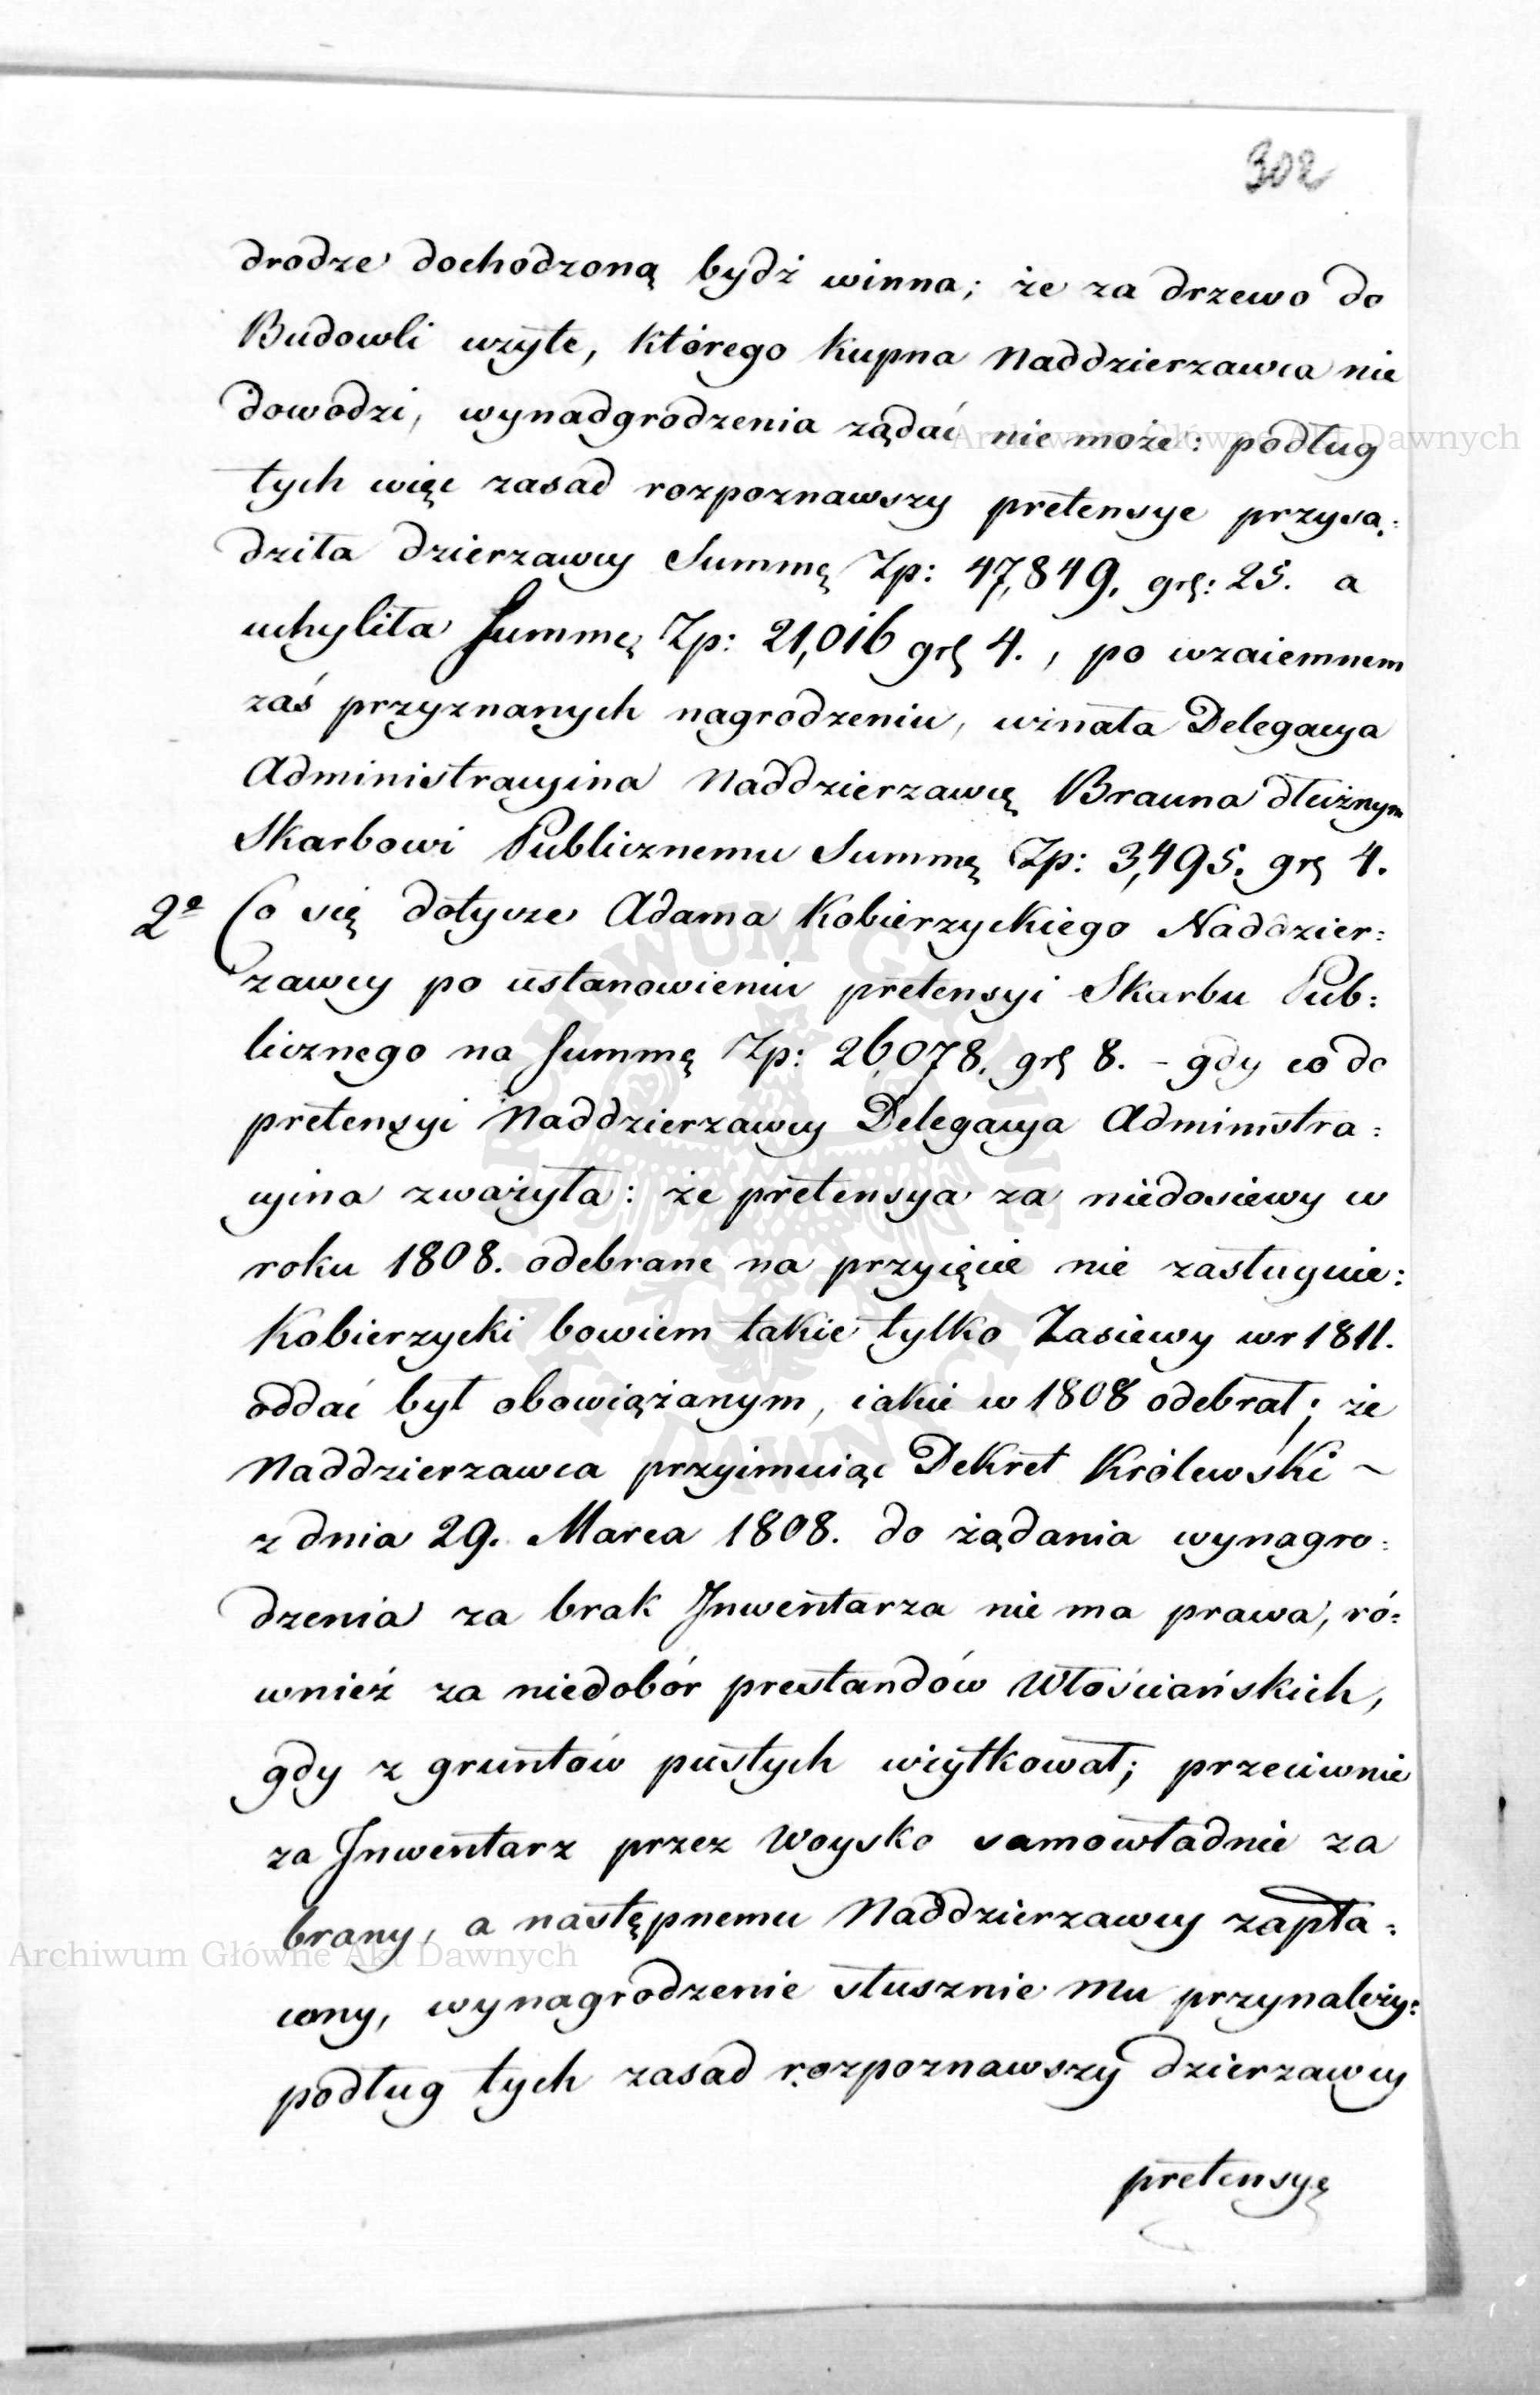 302
drodze dochodzoną bydź winna; że za drzewo do
Budowli użyte, którego kupna Naddzierzawca nie
dowodzi, wynadgrodzenia żądać nie może: podług
tych więc zasad rozpoznawszy pretensye przysą:
dziła dzierzawcy Summę Zp: 47,849. grß: 25. a
uchyliła Summę Zp: 21,016 grß 4., po wzaiemnem
zaś przyznanych nagrodzeniu, uznała Delegacya
Administracyina Naddzierzawcę Brauna dłużnym
Skarbowi Publicznemu Summę Zp: 3,495. grß 4.
2º Co się dotycze Adama Kobierzyckiego Naddzier:
zawcy po ustanowieniu pretensyi Skarbu Pub:
licznego na Summę Zp: 26,078. grß 8. – gdy co do
pretensyi Naddzierzawcy Delegacya Administra:
cyina zważyła: że pretensya za niedosiewy w
roku 1808. odebrane na przyięcie nie zasługuie:
Kobierzycki bowiem takie tylko Zasiewy w r 1811.
oddać był obowiązanym, iakie w 1808 odebrał; że
Naddzierzawca przyimuiąc Dekret Królewski ~
z dnia 29. Marca 1808. do żądania wynagro:
dzenia za brak Inwentarza nie ma prawa, ró:
wnież za niedobór prestandów Włościańskich,
gdy z gruntów pustych użytkował; przeciwnie
za Inwentarz przez Woysko samowładnie za
brany, a następnemu Naddzierzawcy zapła:
cony, wynagrodzenie słusznie mu przynależy:
podług tych zasad rozpoznawszy dzierzawcy
pretensyę
Archiwum Główne Akt Dawnych
Archiwum Główne Akt Dawnych
ARCHIWUM GŁÓWNE AKT DAWNYCH